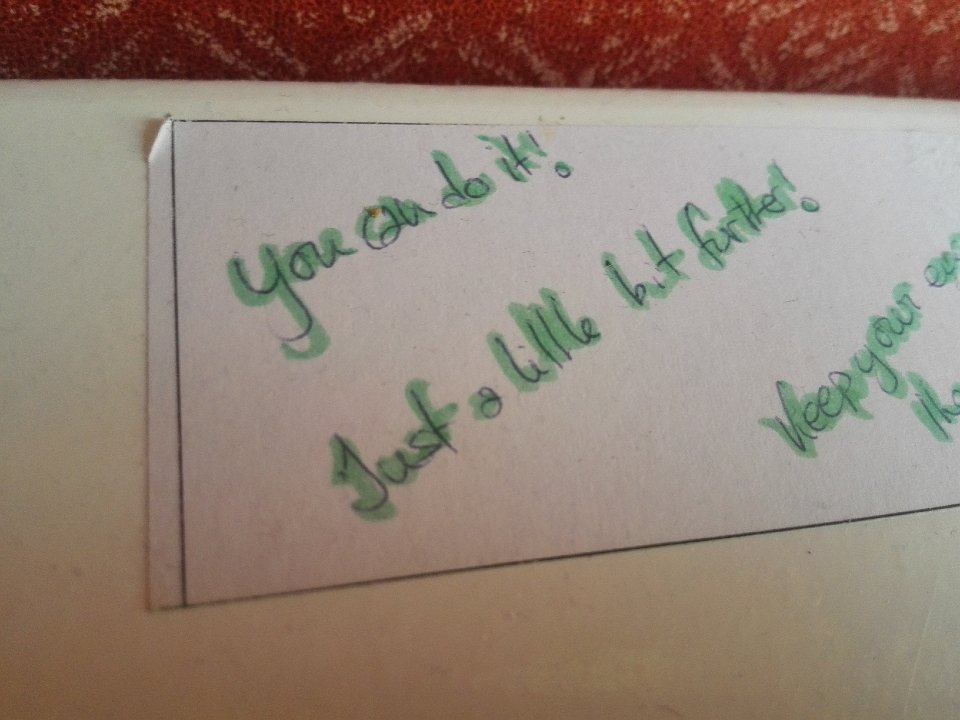 You can do it!
Just a little bit further!
Keep your
the